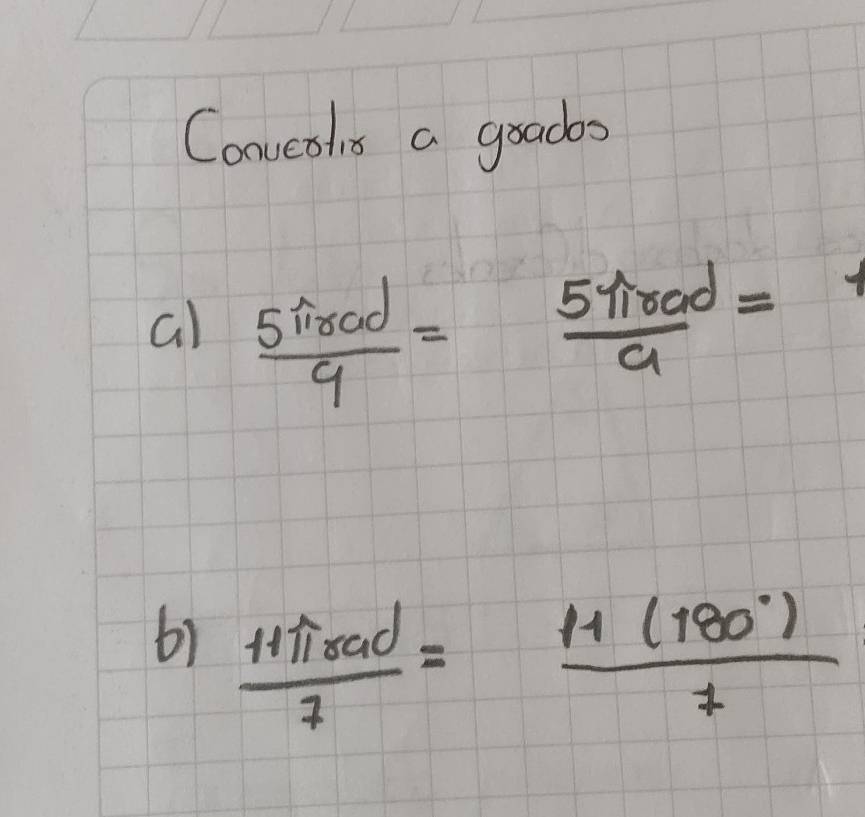 Convertir a grados
a) 5πrad/9 = 5πrad/9 =
b) 11πrad/7 = 11(180°)/7